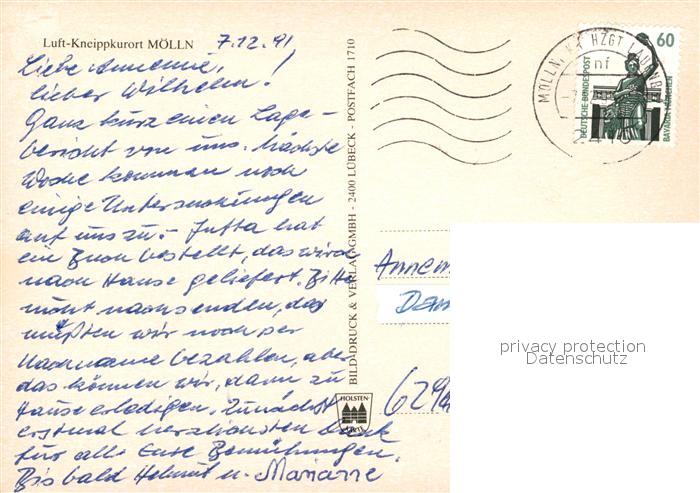 Luft-Kneippkurort MÖLLN
7.12.91
Liebe Annemie,
lieber Wilhelm!
Ganz kurz einen Lage-
bericht von uns. Nächste
Woche kommen noch
einige Untersuchungen
auf uns zu. Jutta hat
ein Buch bestellt, das wird
nach Hause geliefert. Bitte
nicht nachsenden, das
müßten wir noch per
Nachnahme bezahlen, aber
das können wir, dann zu
Hause erledigen. Zunächst
erstmal herzlichsten Dank
für alle Eure Bemühungen.
Bis bald Helmut u. Marianne
BILD&DRUCK & VERLAG GMBH - 2400 LÜBECK - POSTFACH 1710
HOLSTEN
MÖLLN, KR HZGT LAUENB
2410
60
DEUTSCHE BUNDESPOST
BAVARIA MÜNCHEN
Annem
Dam
privacy protection
Datenschutz